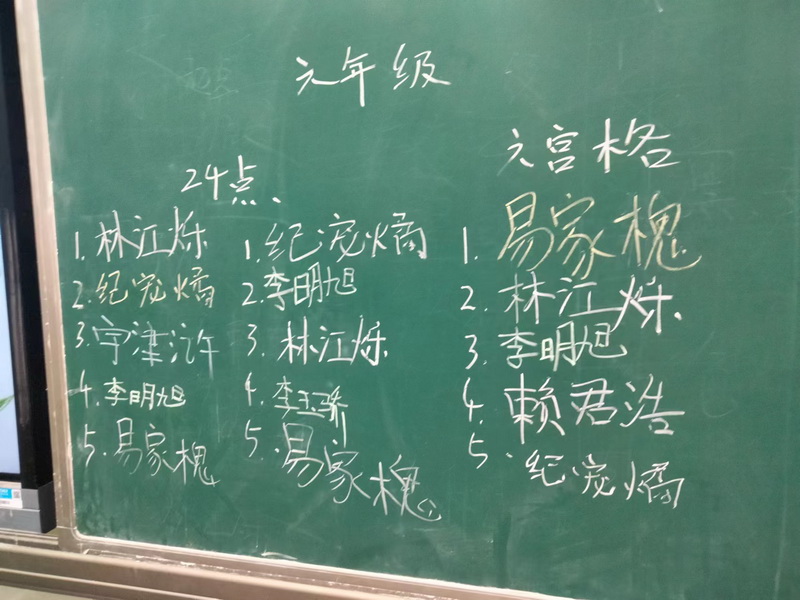 六年级
24点
1.林江烁
2.纪宠燏
3.宇津浒
4.李明旭
5.易家槐
1.纪宠燏
2.李明旭
3.林江烁
4.李玉骄
5.易家槐
六宫格
1.易家槐
2.林江烁
3.李明旭
4.赖君浩
5.纪宠燏